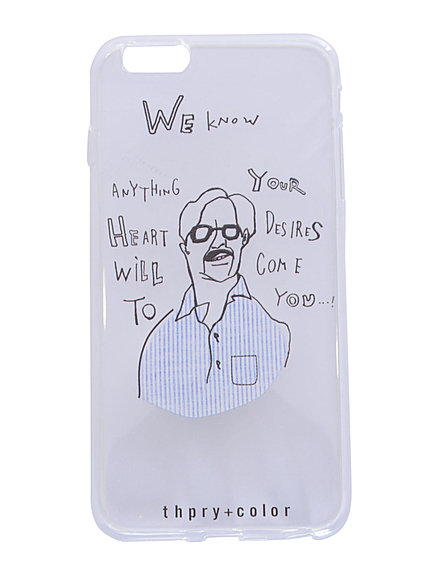 WE KNOW
ANYTHING YOUR
HEART DESIRES
WILL COME
TO YOU...!
thpry+color